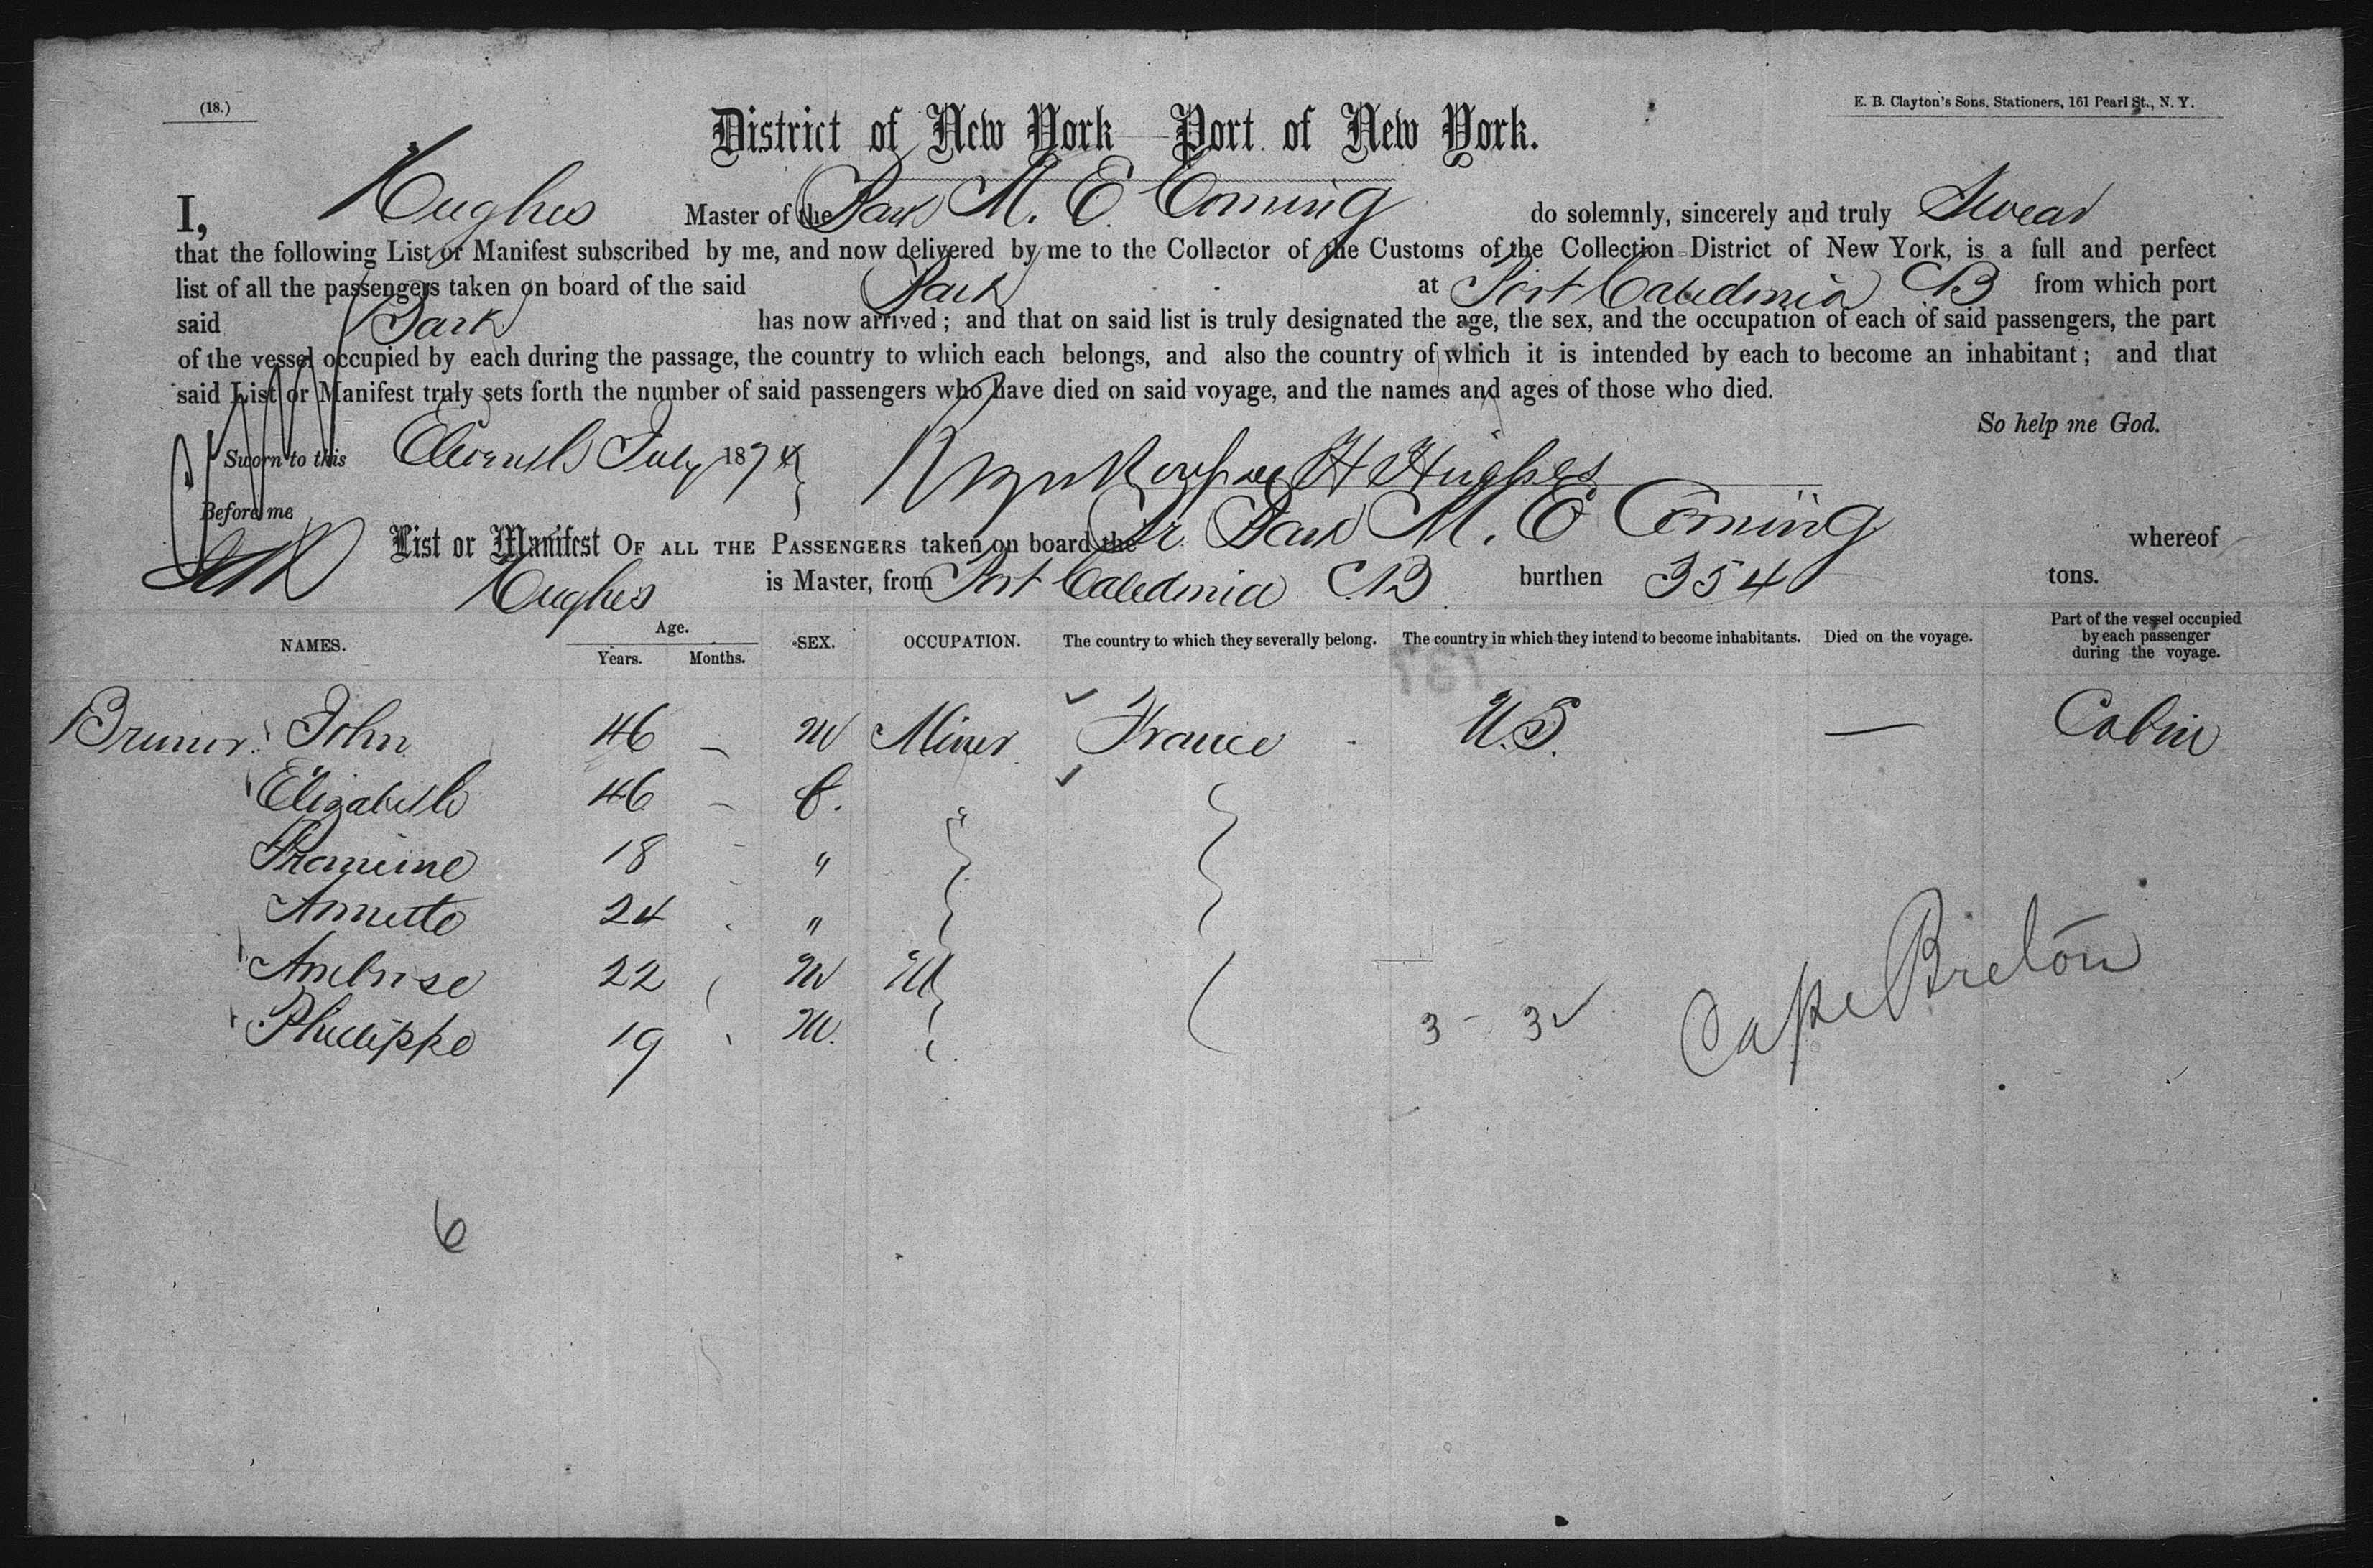 (18.)
E. B. Clayton's Sons, Stationers, 161 Pearl St., N. Y.
District of New York Port of New York.
I, Hughes Master of the Bark M. E. Corning do solemnly, sincerely and truly Swear
that the following List or Manifest subscribed by me, and now delivered by me to the Collector of the Customs of the Collection District of New York, is a full and perfect
list of all the passengers taken on board of the said Bark at Port Caledonia CB from which port
said Bark has now arrived; and that on said list is truly designated the age, the sex, and the occupation of each of said passengers, the part
of the vessel occupied by each during the passage, the country to which each belongs, and also the country of which it is intended by each to become an inhabitant; and that
said List or Manifest truly sets forth the number of said passengers who have died on said voyage, and the names and ages of those who died.
So help me God.
Sworn to this Eleventh July 1874 H Hughes
Before me
List or Manifest OF ALL THE PASSENGERS taken on board the Br Bark M. E Corning whereof
Hughes is Master, from Port Caledonia CB burthen 354 tons.
NAMES. Age. Years. Months. SEX. OCCUPATION. The country to which they severally belong. The country in which they intend to become inhabitants. Died on the voyage. Part of the vessel occupied by each passenger during the voyage.
Bruner John 46 — M Miner France U.S. — Cabin
Elizabeth 46 — f.
18 - "
Annette 24 "
Ambrose 22 M M
Phillippe 19 M.
3 - 3 ✓
Cape Breton
6